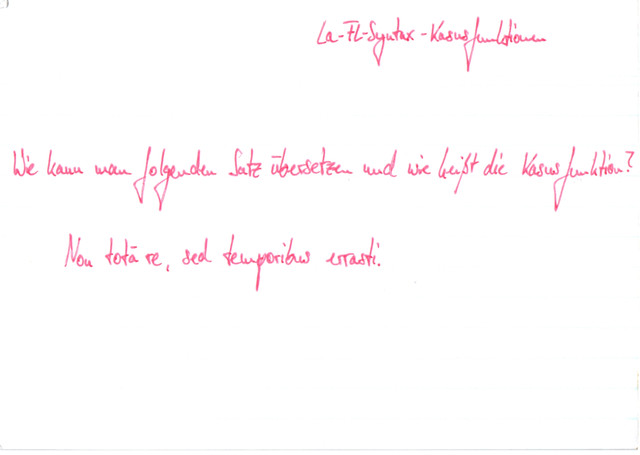 La-FL-Syntax-Kasusfunktionen
Wie kann man folgenden Satz übersetzen und wie heißt die Kasusfunktion?
Non totā re, sed temporibus errasti.